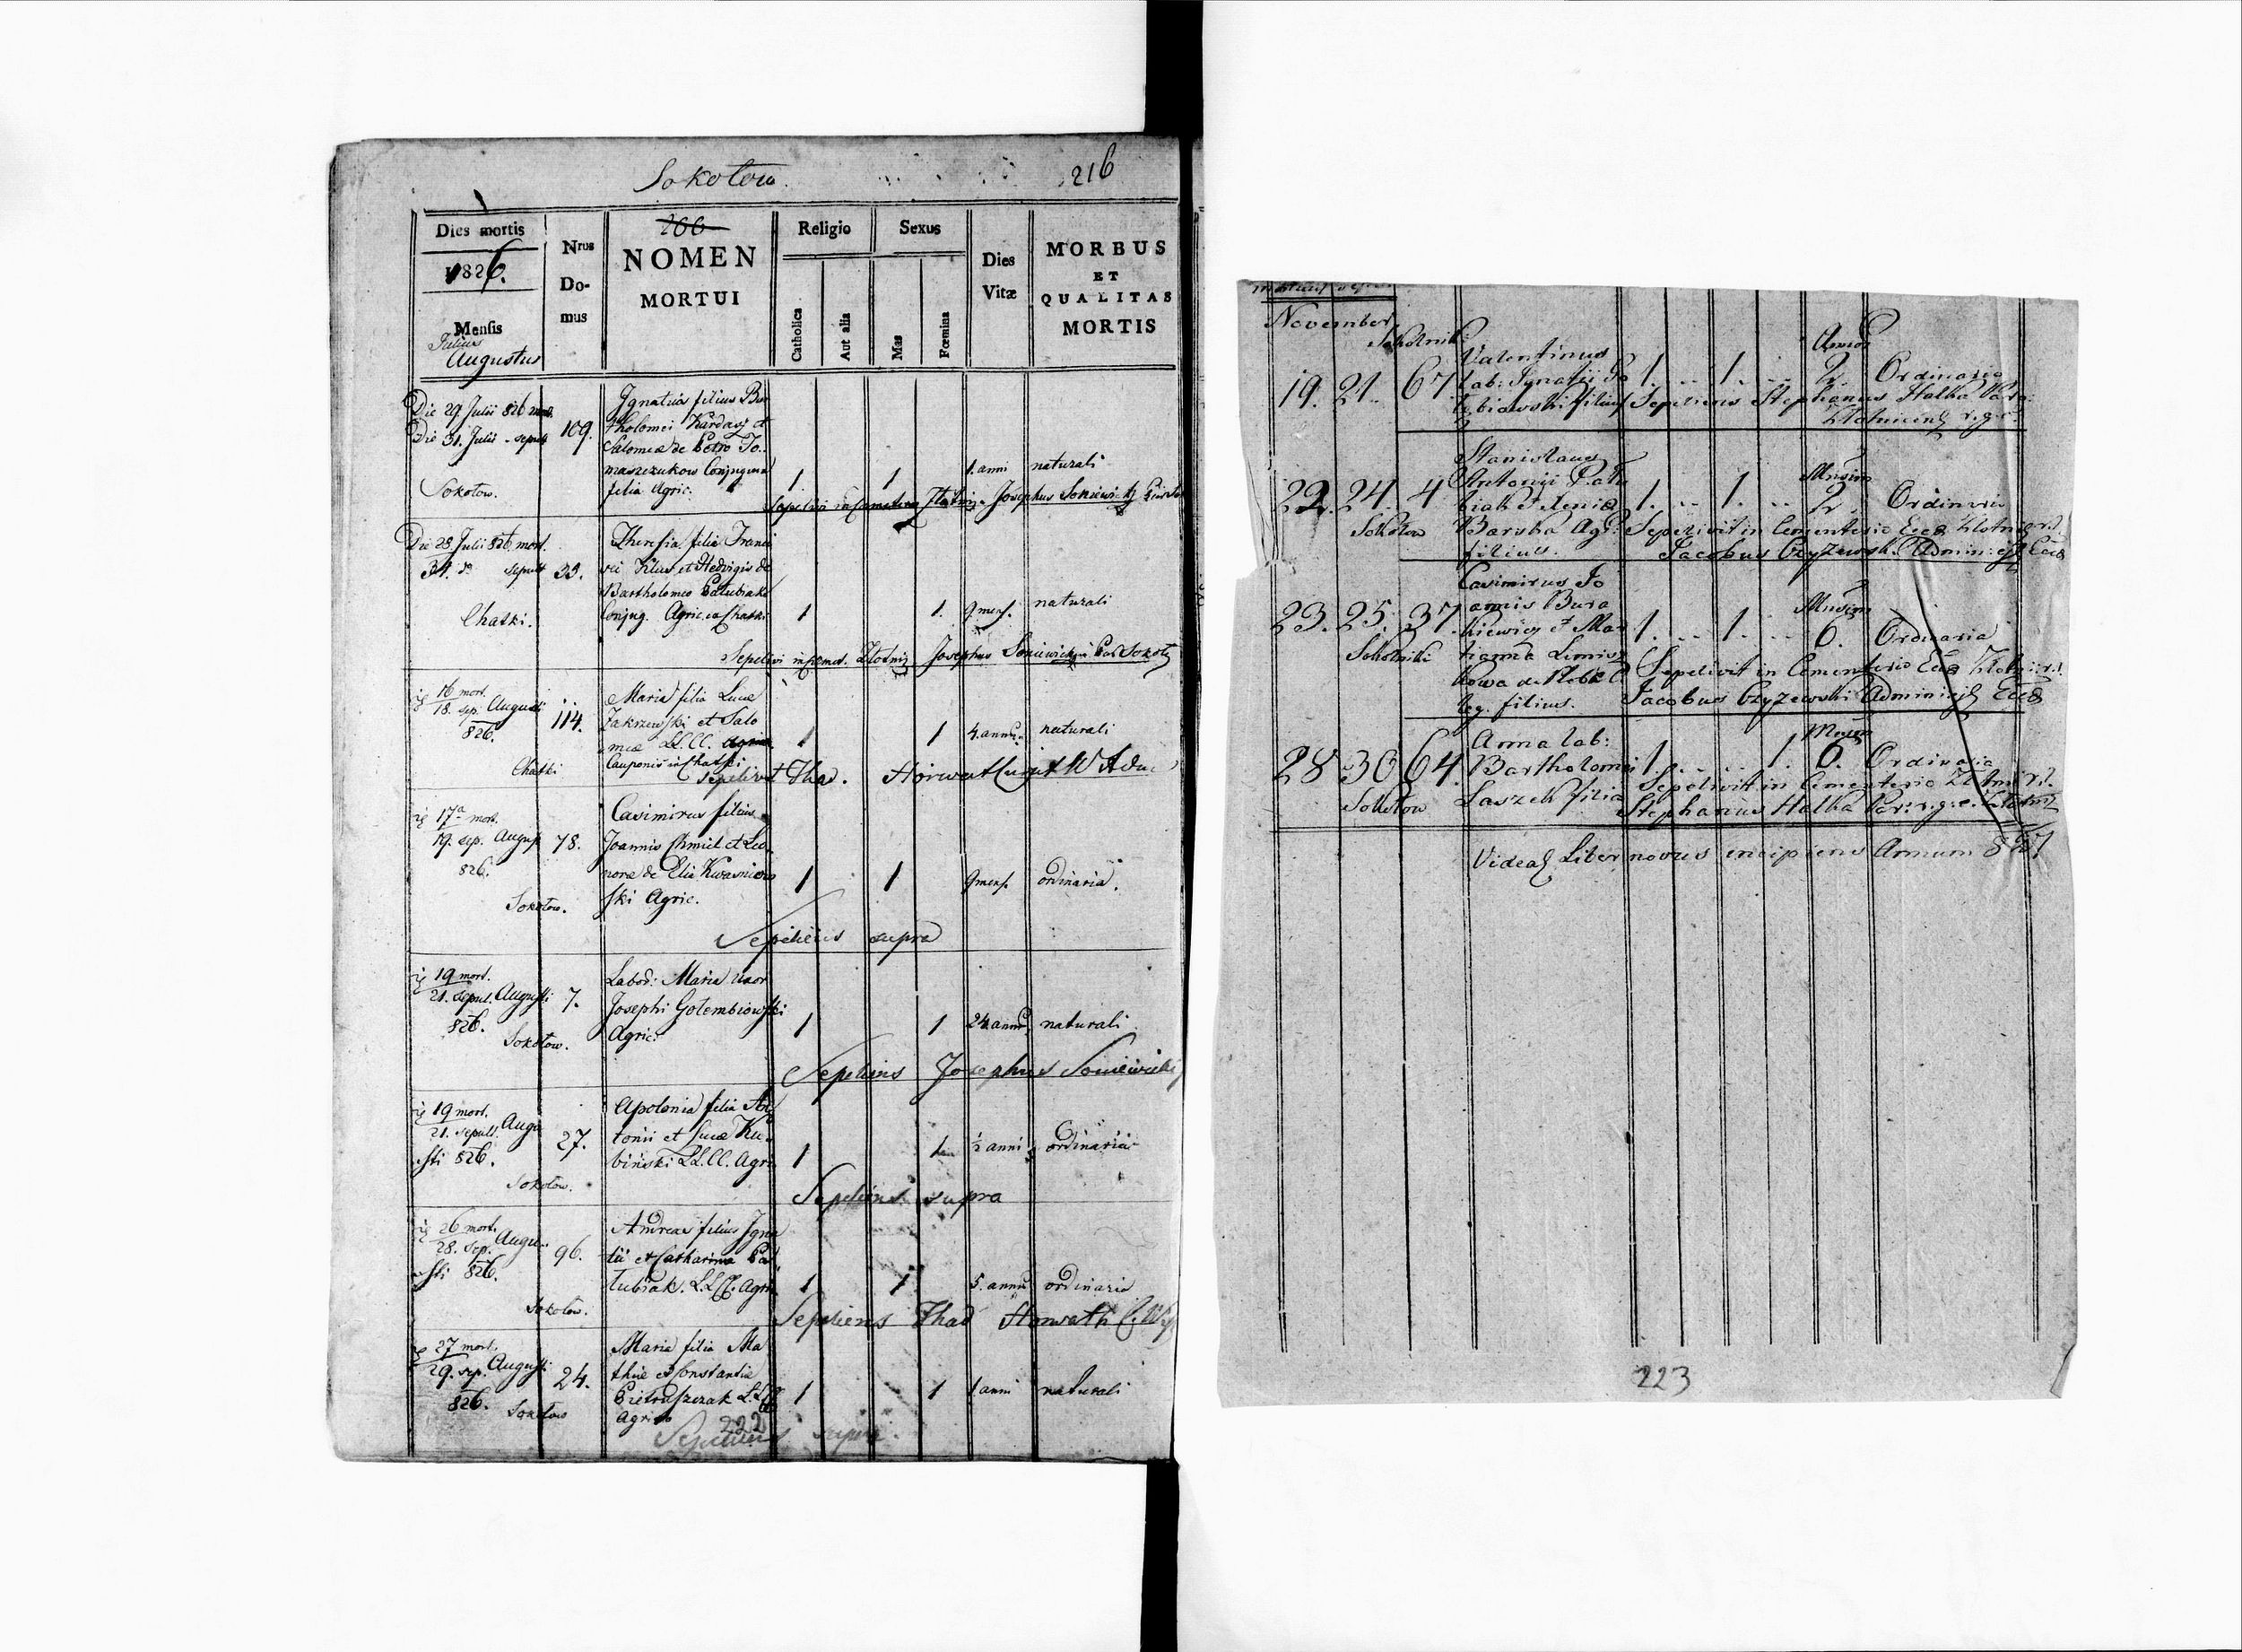 Sokołow.
216
Dies mortis
1826.
Mensis
Julius
Augustus
Nrus
Do-
mus
266
NOMEN
MORTUI
Religio
Catholica
Aut alia
Sexus
Mas
Fœmina
Dies
Vitæ
MORBUS
ET
QUALITAS
MORTIS
Die 29 Julii 826 mort.
Die 31. Julii - sepult
Sokołow.
109.
Ignatius filius Bar
tholomei Kardasz et
Salomeæ de Petro To..
maszczukow Conjugum
filia Agric.
1
1
1. anni
naturali
Sepelivi in Cæmeterio Złotnic. Josephus Soniewicki
Die 28 Julii 826 mort.
31. do sepult
Chatki.
35.
Theresia filia Franci
sci Klus et Hedvigis de
Bartholomeo Patubiak
Conjug. Agric. ex Chatki
1
1.
9 mens.
naturali
Sepelivi in Cæmet. Złotnic Josephus Soniewicki Sokoł
16 mort.
18. sep. Augusti
826.
Chatki
114.
Maria filia Lucæ
Zakrzewski et Salo
meæ LL. CC.
Cauponis in Chatki
1
1
4. annor.
naturali
Sepelivit Thad. Horwat
17a mort.
19. sep. Augusti
826.
Sokołow.
78.
Casimirus filius
Joannis Chmiel et Leo
noræ de Elia Kwasniew
ski Agric.
1
1
9 mens.
ordinaria.
Sepeliens supra
19 mort.
21. sepul. Augusti
826.
Sokołow.
7.
Labor: Maria uxor
Josephi Gołembiowski
Agric:
1
1
24 annor.
naturali
Sepeliens Josephus Soniewicki
19 mort.
21. sepult. Augu
sti 826.
Sokołow.
27.
Apolonia filia An
tonii et Lucæ Ku
biński LL. CC. Agri
1
1
½ anni
ordinaria
Sepeliens supra
26 mort.
28. sep. Augu
sti 826.
Sokołow.
96.
Andreas filius Igna
tii et Catharina Pa
tubiak. LL. CC. Agri
1
1
5. annor
ordinaria
Sepeliens Thad Horwath
27 mort.
29. sep. Augusti
826.
Sokołow
24.
Maria filia Ma
thiæ et Constantiæ
Pietraszczak
Agric
1
1
1 anni
naturali
222
Sepeliens supra.
November
Sokolniki
19. 21. 67
Valentinus
lab: Ignatii Go
łębiowski filius
1. .. 1. ..
Annor
2.
Ordinaria
Sepeliens Stephanus Halka
Złotnicens r. g. c.
22. 24. 4
Sokołow
Stanislaus
Antonii Patu
biak
Barska Agr:
filius.
1. .. 1. ..
Mensium
2.
Ordinaria
Sepelivit in Cementerio Eccæ Złotni r. l.
Jacobus Czyżewski Admin: ejg Eccæ
23. 25. 37
Sokolniki
Casimirus Jo
annis Bura
kiewicz et Mar
leg. filius.
1. .. 1. ..
Mensium
6.
Ordinaria
Sepelivit in Cementerio Eccæ Złotni: r. l.
Jacobus Czyżewski Admin: ejg Eccæ
28 30 64.
Sokołow
Anna lab:
Bartholomei
Laszek filia
1. .. .. 1.
Mensium
6.
Ordinaria
Sepelivit in Cementerio Złotni r. l.
Stephanus Halka Par: r. g. c. Złotni
Videas Liber novus incipiens Annum 827
223